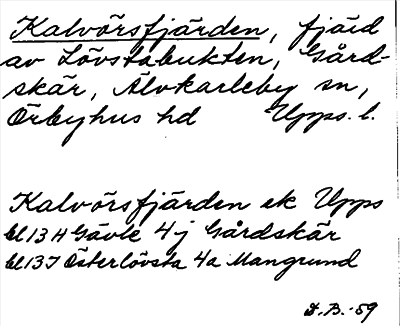 Kalvörsfjärden, fjärd
av Lövstabukten, Gård-
skär, Älvkarleby sn,
Örbyhus hd Upps. l.
Kalvörsfjärden ek Upps
bl 13 H Gävle 4j Gårdskär
bl 13 I Österlövsta 4a Mangrund
B. -59